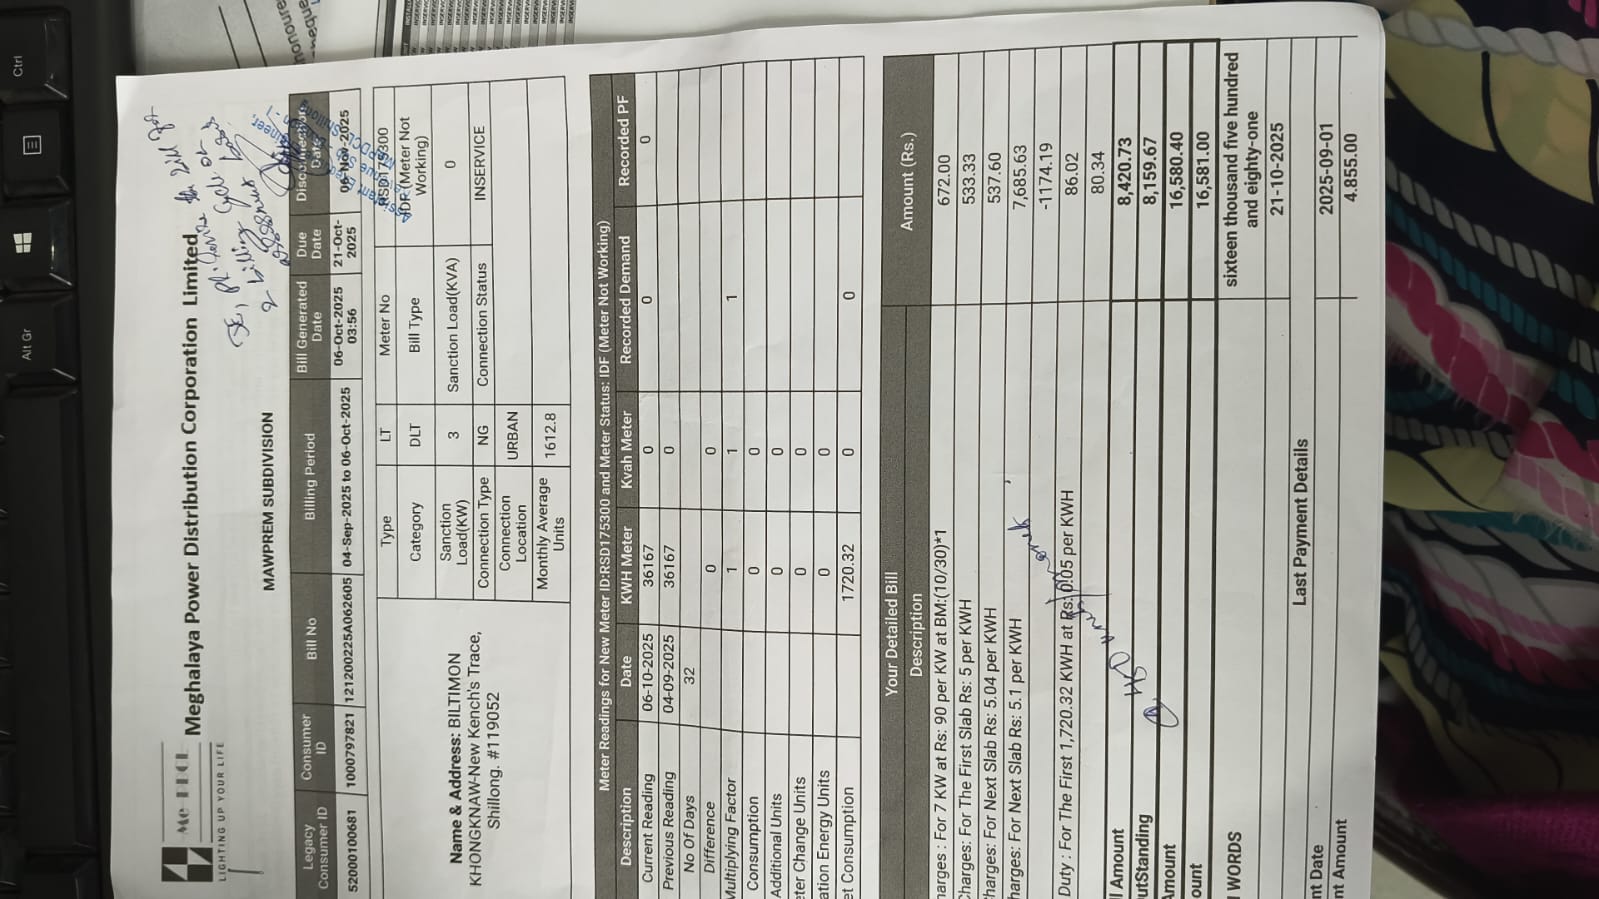 Me ECL
LIGHTING UP YOUR LIFE
Meghalaya Power Distribution Corporation Limited
MAWPREM SUBDIVISION
Legacy Consumer ID Consumer ID Bill No Billing Period Bill Generated Date Due Date Disconnection Date
5200100681 1000797821 121200225A062605 04-Sep-2025 to 06-Oct-2025 06-Oct-2025 03:56 21-Oct-2025 06-Nov-2025
Name & Address: BILTIMON
KHONGKNAW-New Kench's Trace,
Shillong. #1119052
Type LT Meter No RSD175300
Category DLT Bill Type IDF(Meter Not Working)
Sanction Load(KW) 3 Sanction Load(KVA) 0
Connection Type NG Connection Status INSERVICE
Connection Location URBAN
Monthly Average Units 1612.8
Meter Readings for New Meter ID:RSD175300 and Meter Status: IDF (Meter Not Working)
Description Date KWH Meter Kvah Meter Recorded Demand Recorded PF
Current Reading 06-10-2025 36167 0 0 0
Previous Reading 04-09-2025 36167 0
No Of Days 32
Difference 0 0
Multiplying Factor 1 1 1
Consumption 0 0
Additional Units 0 0
ter Change Units 0 0
ation Energy Units 0 0
et Consumption 1720.32 0 0
Your Detailed Bill
Description Amount (Rs.)
harges : For 7 KW at Rs: 90 per KW at BM:(10/30)*1 672.00
Charges: For The First Slab Rs: 5 per KWH 533.33
harges: For Next Slab Rs: 5.04 per KWH 537.60
harges: For Next Slab Rs: 5.1 per KWH 7,685.63
-1174.19
Duty : For The First 1,720.32 KWH at Rs: 0.05 per KWH 86.02
80.34
ll Amount 8,420.73
utStanding 8,159.67
Amount 16,580.40
ount 16,581.00
I WORDS sixteen thousand five hundred and eighty-one
21-10-2025
Last Payment Details
nt Date 2025-09-01
nt Amount 4.855.00
Ctrl
Alt Gr